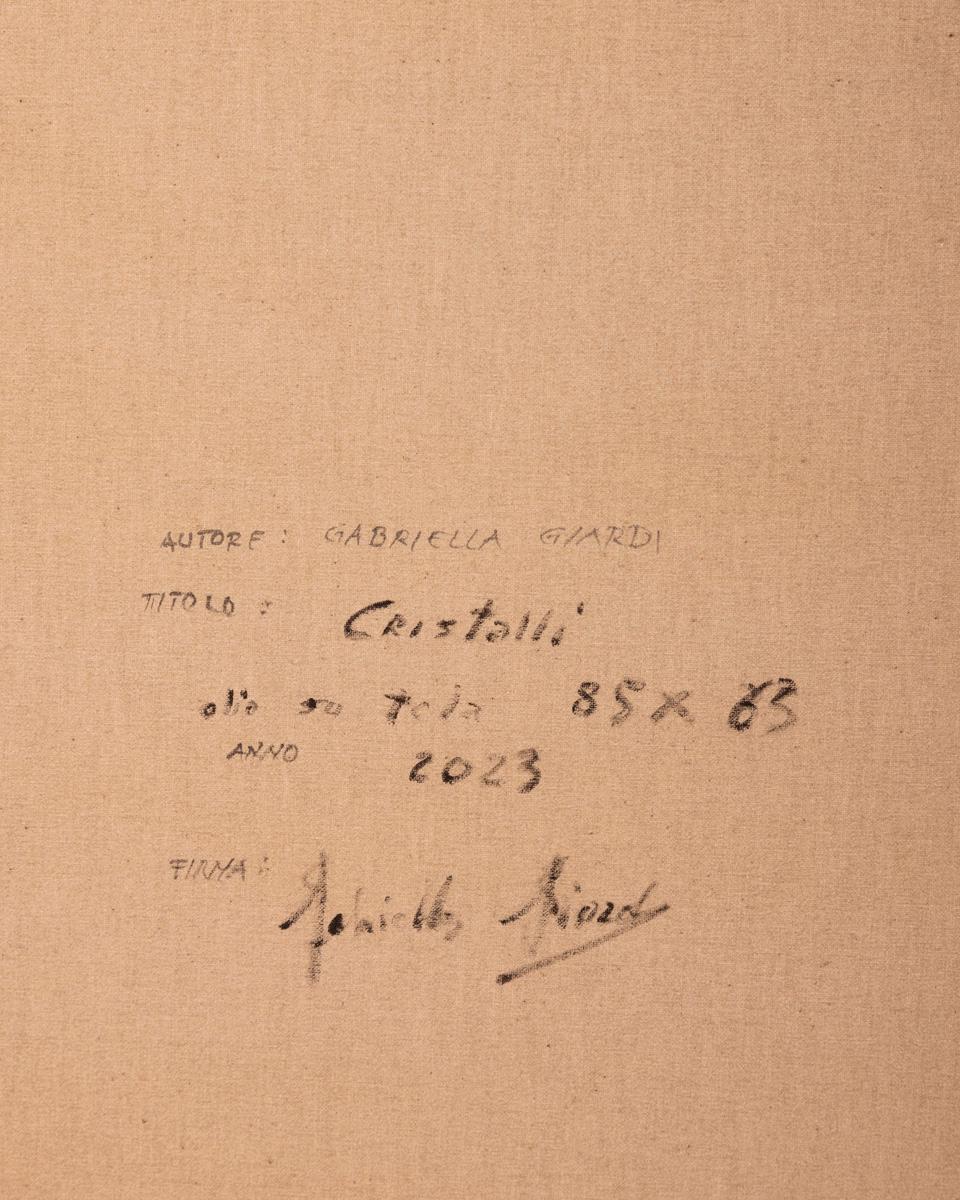 AUTORE: GABRIELLA GIARDI
TITOLO: Cristalli
olio su tela 85 x 63
ANNO 2023
FIRMA: Gabriella Giardi